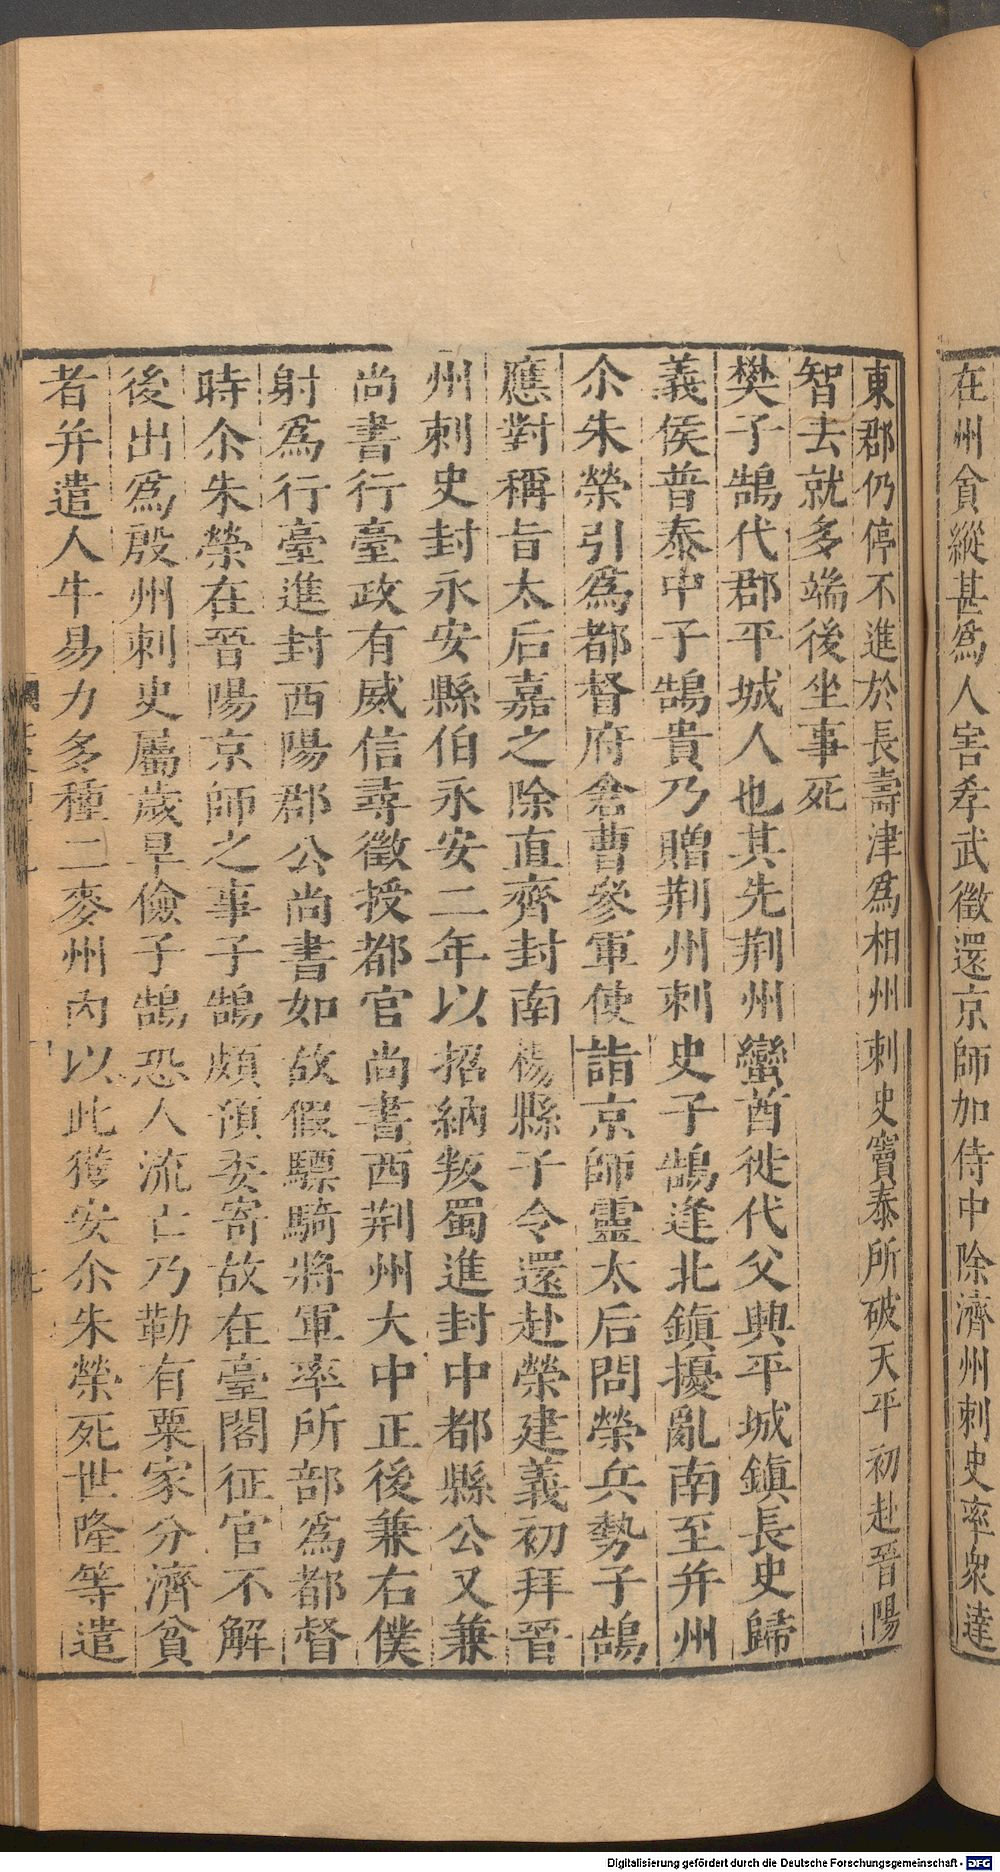 在州貪縱甚爲人害孝武徵還京師加侍中除濟州刺史率衆達
東郡仍停不進於長壽津爲相州刺史竇泰所破天平初赴晉陽
智去就多端後坐事死
樊子鵠代郡平城人也其先荆州蠻酋徙代父興平城鎮長史歸
義侯普泰中子鵠貴乃贈荆州刺史子鵠逢北鎮擾亂南至并州
尒朱榮引爲都督府倉曹參軍使詣京師靈太后問榮兵勢子鵠
應對稱旨太后嘉之除直齊封南楊縣子令還赴榮建義初拜晉
州刺史封永安縣伯永安二年以招納叛蜀進封中都縣公又兼
尚書行臺政有威信尋徵授都官尚書西荆州大中正後兼右僕
射爲行臺進封西陽郡公尚書如故假驃騎將軍率所部爲都督
時尒朱榮在晉陽京師之事子鵠頗預委寄故在臺閣征官不解
後出爲殷州刺史屬歲旱儉子鵠恐人流亡乃勒有粟家分濟貧
者并遣人牛易力多種二麥州內以此獲安尒朱榮死世隆等遣
Digitalisierung gefördert durch die Deutsche Forschungsgemeinschaft - DFG